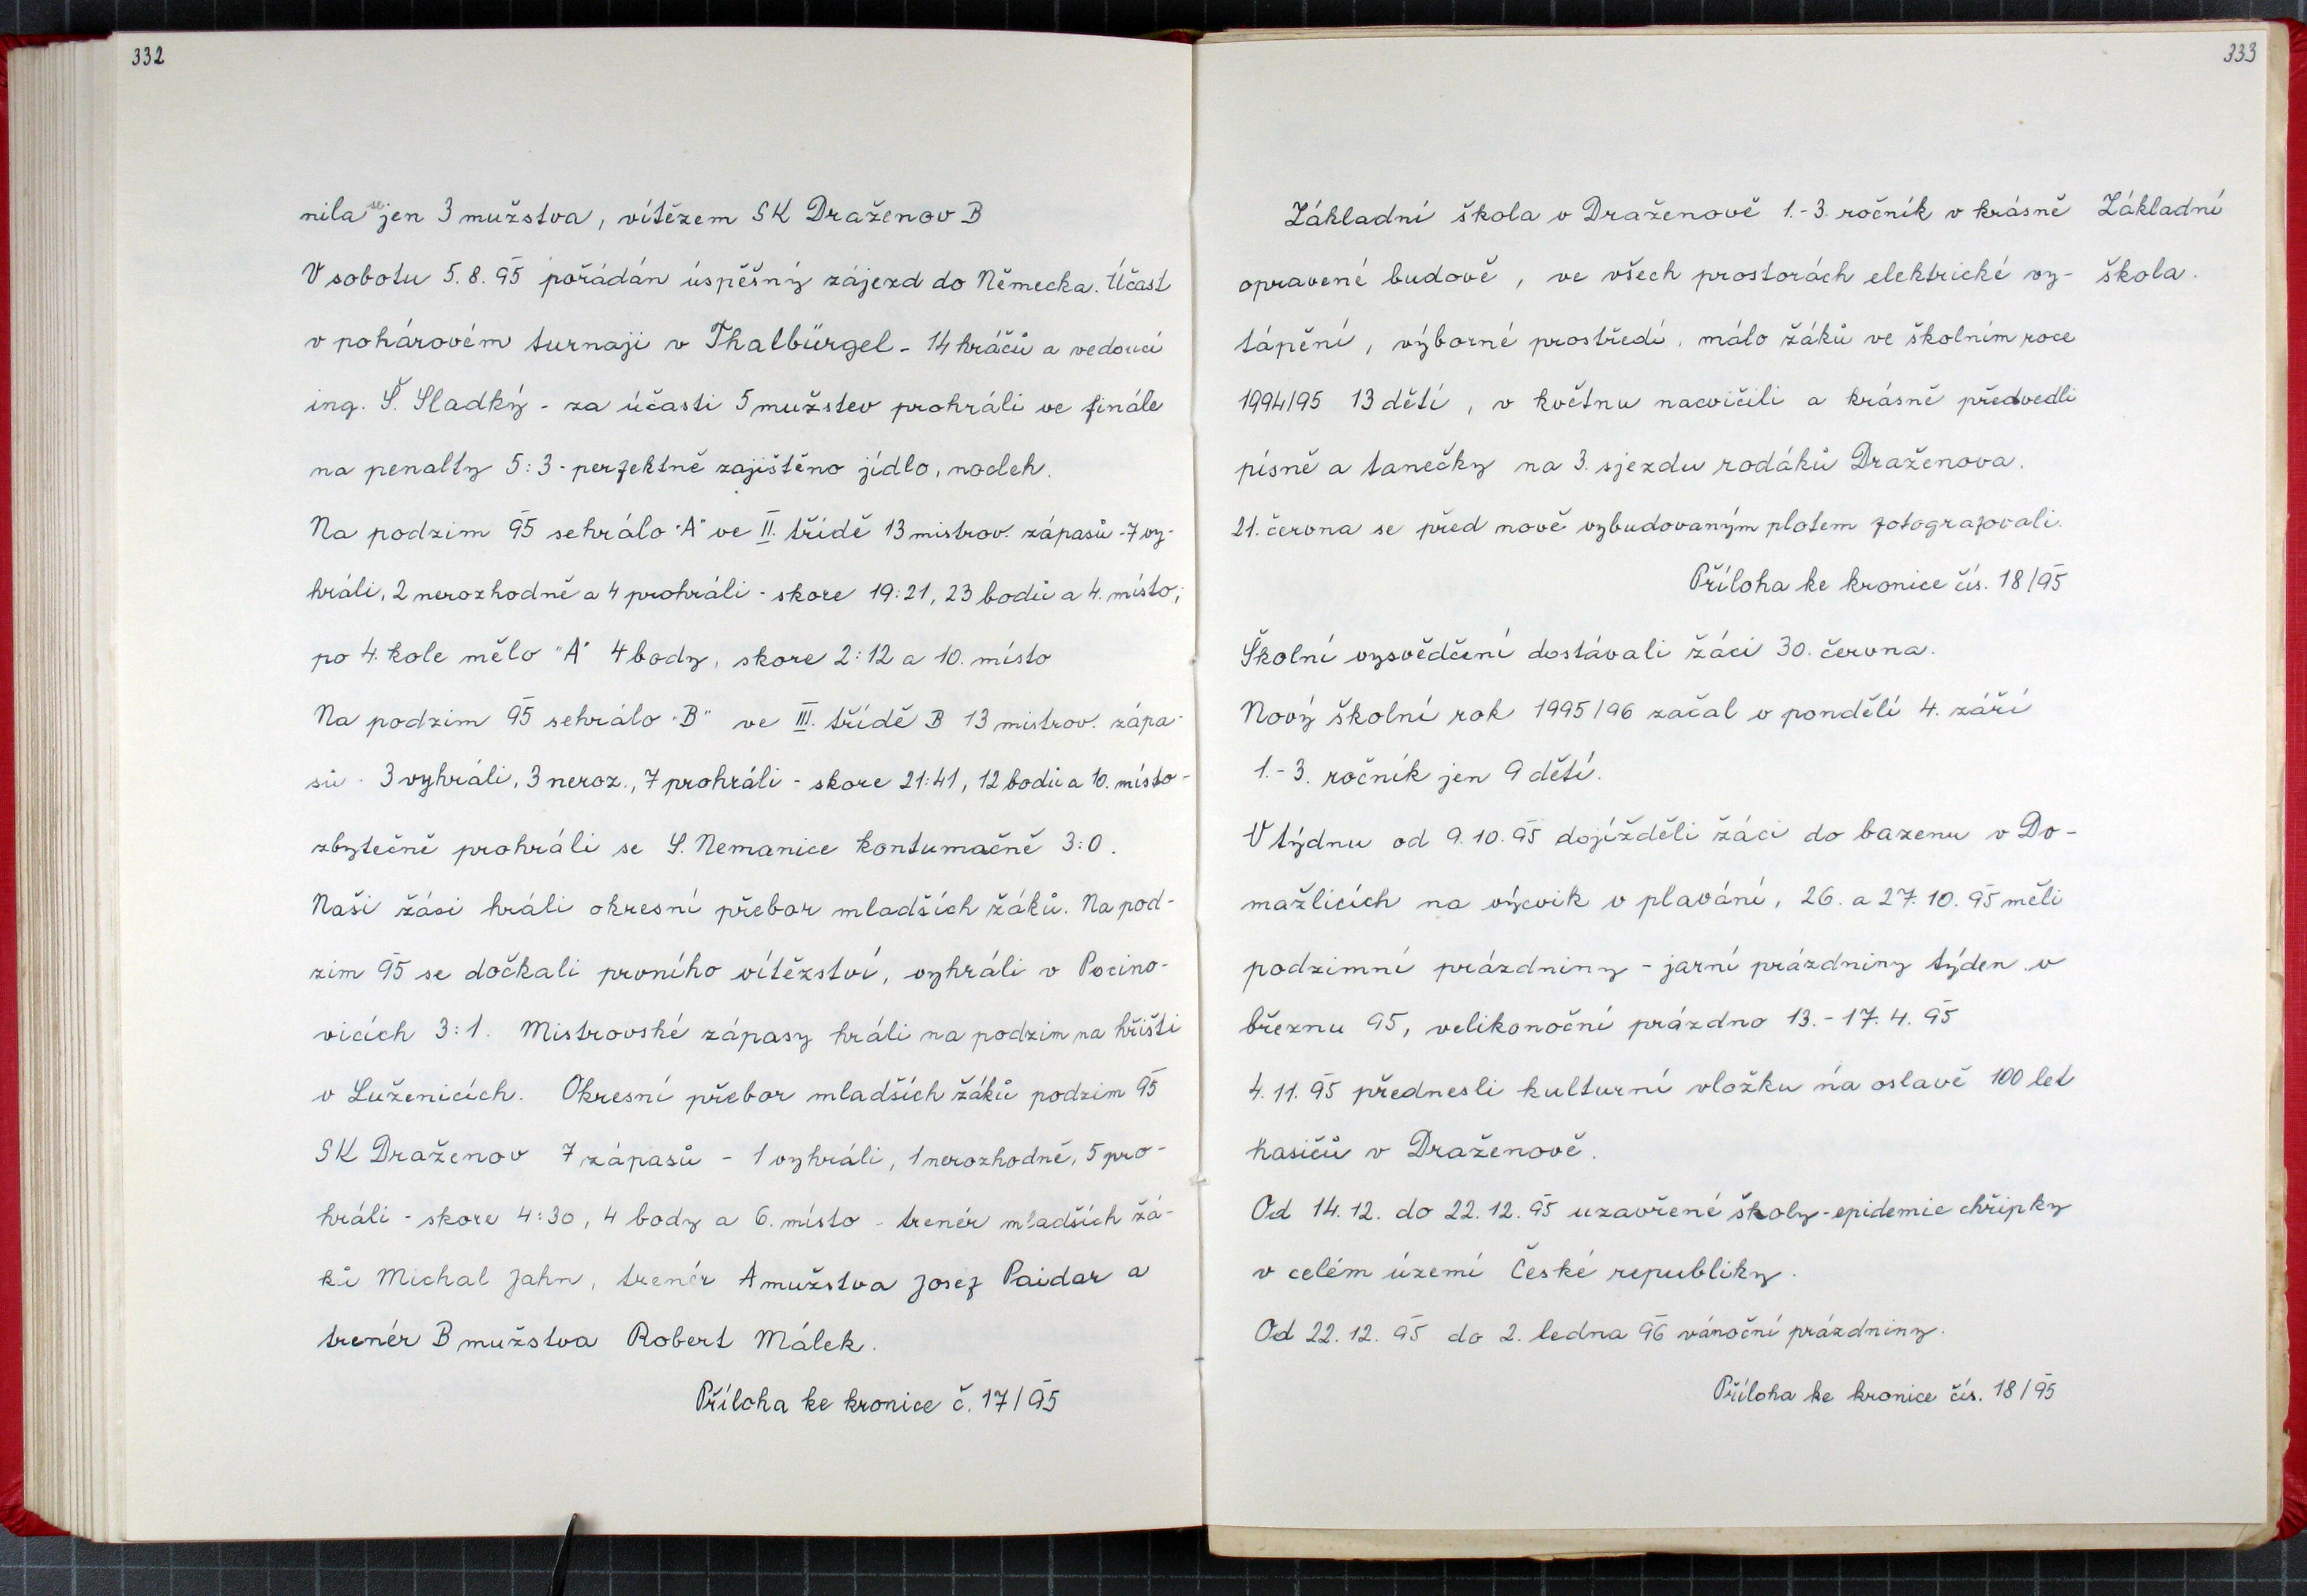 332
nila se jen 3 mužstva, vítězem SK Draženov B
V sobotu 5. 8. 95 pořádán úspěšný zájezd do Německa. Účast
v pohárovém turnaji v Thalbürgel - 14 hráčů a vedoucí
ing. Š. Sladký - za účasti 5 mužstev prohráli ve finále
na penalty 5:3 - perfektně zajištěno jídlo, nocleh.
Na podzim 95 sehrálo "A" ve II. třídě 13 mistrov. zápasů - 7 vy-
hráli, 2 nerozhodně a 4 prohráli - skore 19:21, 23 bodů a 4. místo;
po 4. kole mělo "A" 4 body, skore 2:12 a 10. místo
Na podzim 95 sehrálo "B" ve III. třídě B 13 mistrov. zápa-
sů - 3 vyhráli, 3 neroz., 7 prohráli - skore 21:41, 12 bodů a 10. místo -
zbytečně prohráli se S. Nemanice kontumačně 3:0.
Naši žáci hráli okresní přebor mladších žáků. Na pod-
zim 95 se dočkali prvního vítězství, vyhráli v Pocino-
vicích 3:1. Mistrovské zápasy hráli na podzim na hřišti
v Luženicích. Okresní přebor mladších žáků podzim 95
SK Draženov 7 zápasů - 1 vyhráli, 1 nerozhodně, 5 pro-
hráli - skore 4:30, 4 body a 6. místo - trenér mladších žá-
ků Michal Jahn, trenér A mužstva Josef Paidar a
trenér B mužstva Robert Málek.
Příloha ke kronice č. 17/95
333
Základní škola v Draženově 1.-3. ročník v krásně
opravené budově, ve všech prostorách elektrické vy-
tápění, výborné prostředí, málo žáků ve školním roce
1994/95 13 dětí, v květnu nacvičili a krásně předvedli
písně a tanečky na 3. sjezdu rodáků Draženova.
21. června se před nově vybudovaným plotem fotografovali.
Příloha ke kronice čís. 18/95
Školní vysvědčení dostávali žáci 30. června.
Nový školní rok 1995/96 začal v pondělí 4. září
1.-3. ročník jen 9 dětí.
V týdnu od 9. 10. 95 dojížděli žáci do bazenu v Do-
mažlicích na výcvik v plavání, 26. a 27. 10. 95 měli
podzimní prázdniny - jarní prázdniny týden v
březnu 95, velikonoční prázdno 13.-17. 4. 95
4. 11. 95 přednesli kulturní vložku na oslavě 100 let
hasičů v Draženově.
Od 14. 12. do 22. 12. 95 uzavřené školy - epidemie chřipky
v celém území České republiky.
Od 22. 12. 95 do 2. ledna 96 vánoční prázdniny.
Příloha ke kronice čís. 18/95
Základní
škola.